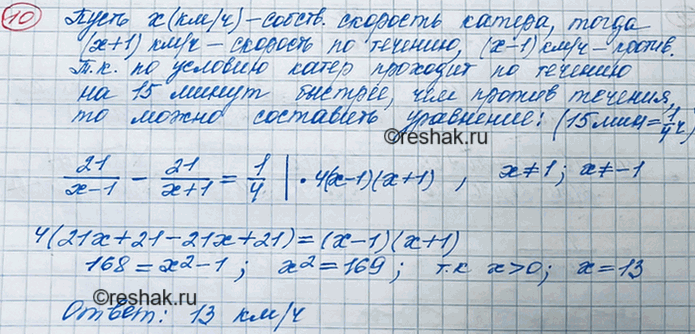 10 Пусть x (км/ч) – собств. скорость катера, тогда
(x+1) км/ч – скорость по течению, (x-1) км/ч – против.
Т.к. по условию катер проходит по течению
на 15 минут быстрее, чем против течения,
то можно составить уравнение: (15 мин = 1/4 ч)
21/(x-1) - 21/(x+1) = 1/4 | · 4(x-1)(x+1) , x≠1; x≠-1
4(21x+21-21x+21)=(x-1)(x+1)
168 = x²-1 ; x²=169 ; т.к x>0; x=13
Ответ: 13 км/ч
©reshak.ru
©reshak.ru
reshak.ru